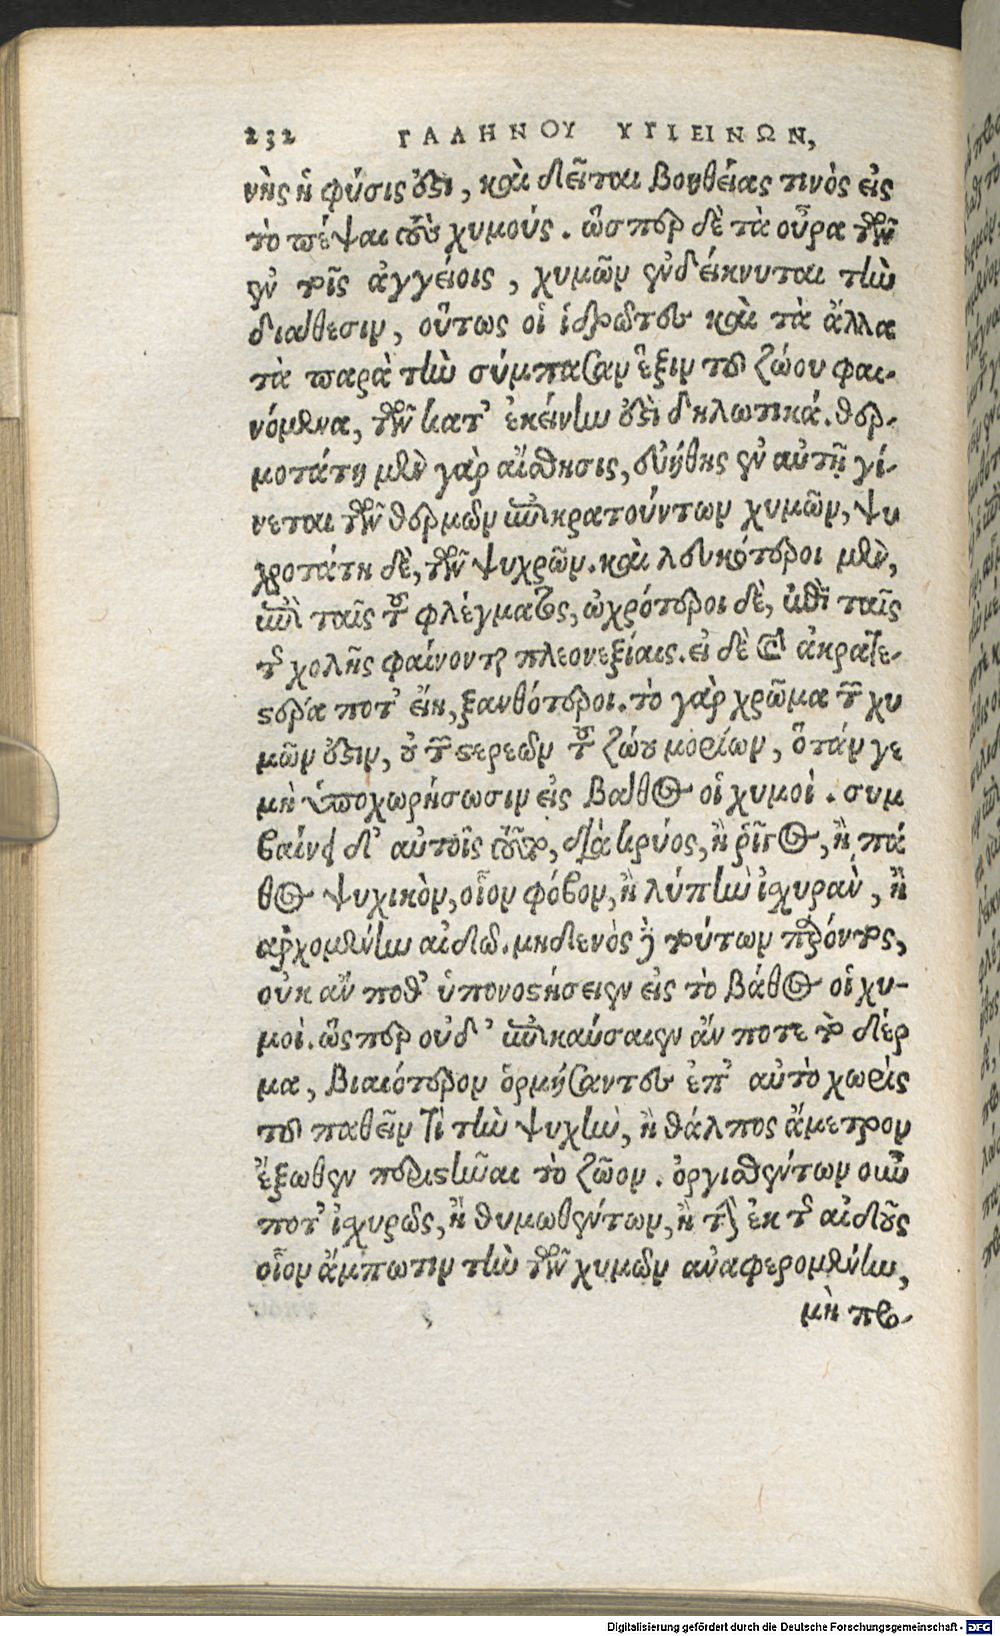 232 ΓΑΛΗΝΟΥ ΥΓΙΕΙΝΩΝ,
νὴς ἡ φύσις ἐστὶ, καὶ δεῖται βοηθείας τινὸς εἰς
τὸ πέψαι τοὺς χυμούς. ὥσπερ δὲ τὰ οὖρα τῶν
ἐν τοῖς ἀγγείοις, χυμῶν ἐνδείκνυται τὴν
διάθεσιν, οὕτως οἱ ἱδρῶτες καὶ τὰ ἄλλα
τὰ παρὰ τὴν σύμπασαν ἕξιν τοῦ ζώου φαι-
νόμενα, τῶν κατ' ἐκείνην ἐστὶ δηλωτικά. θερ-
μοτάτη μὲν γὰρ αἴσθησις, συνήθης ἐν αὐτῇ γί-
νεται τῶν θερμῶν ἐπικρατούντων χυμῶν, ψυ
χροτάτη δὲ, τῶν ψυχρῶν. καὶ λευκότεροι μὲν,
ἐπὶ ταῖς τοῦ φλέγματος, ὠχρότεροι δὲ, ἐπὶ ταῖς
τῆς χολῆς φαίνονται πλεονεξίαις. εἰ δὲ καὶ ἀκρατε-
στέρα ποτ' εἴη, ξανθότεροι. τὸ γὰρ χρῶμα τῶν χυ
μῶν ἐστιν, οὐ τῶν στερεῶν τοῦ ζώου μορίων, ὅτάν γε
μὴ ὑποχωρήσωσιν εἰς βάθος οἱ χυμοὶ. συμ
βαίνει δ' αὐτοῖς τοῦτο, διὰ κρύος, ἢ ῥῖγος, ἢ πά
θος ψυχικὸν, οἷον φόβον, ἢ λύπην ἰσχυρὰν, ἢ
ἀρχομένην αἰδῶ. μηδενὸς δὲ τούτων παρόντος,
οὐκ ἄν ποθ' ὑπονοστήσειεν εἰς τὸ βάθος οἱ χυ-
μοὶ. ὥσπερ οὐδ' ἐπικαύσαιεν ἄν ποτε τὸ δέρ
μα, βιαιότερον ὁρμήσαντες ἐπ' αὐτὸ χωρὶς
τοῦ παθεῖν τὶ τὴν ψυχὴν, ἢ θάλπος ἄμετρον
ἔξωθεν περιστῆναι τὸ ζῶον. ὀργισθέντων οὖν
ποτ' ἰσχυρῶς, ἢ θυμωθέντων, ἢ τὴν ἐκ τῆς αἰδοῦς
οἷον ἄμπωτιν τὴν τῶν χυμῶν ἀναφερομένην,
μὴ προ-
Digitalisierung gefördert durch die Deutsche Forschungsgemeinschaft - DFG